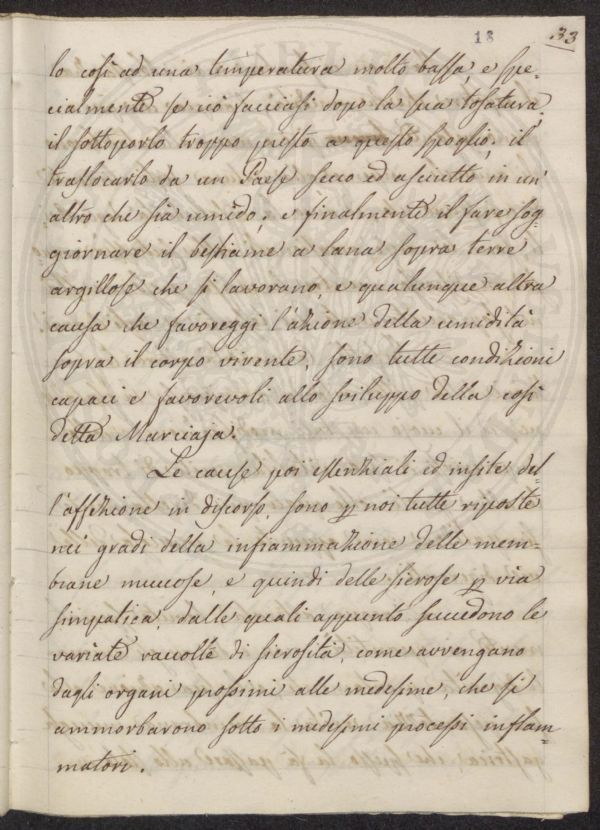 18 33
lo così ad una temperatura molto bassa, e spe-
cialmente se ciò facciasi dopo la sua tosatura,
il sottoporlo troppo presto a questo spoglio, il
traslocarlo da un Paese secco ed asciutto in un'
altro che sia umido; e finalmente il fare sog-
giornare il bestiame a lana sopra terre
argillose che si lavorano, e qualunque altra
causa che favoreggi l'azione della umidità
sopra il corpo vivente, sono tutte condizioni
capaci e favorevoli allo sviluppo della così
detta Marciaja.
Le cause poi essenziali ed insite del-
l'affezione in discorso, sono p noi tutte riposte
nei gradi della infiammazione delle mem-
brane muccose, e quindi delle sierose p via
simpatica, dalle quali appunto succedono le
variate raccolte di sierosità, come avvengano
dagli organi prossimi alle medesime, che si
ammorbarono sotto i medesimi processi inflam-
matori.